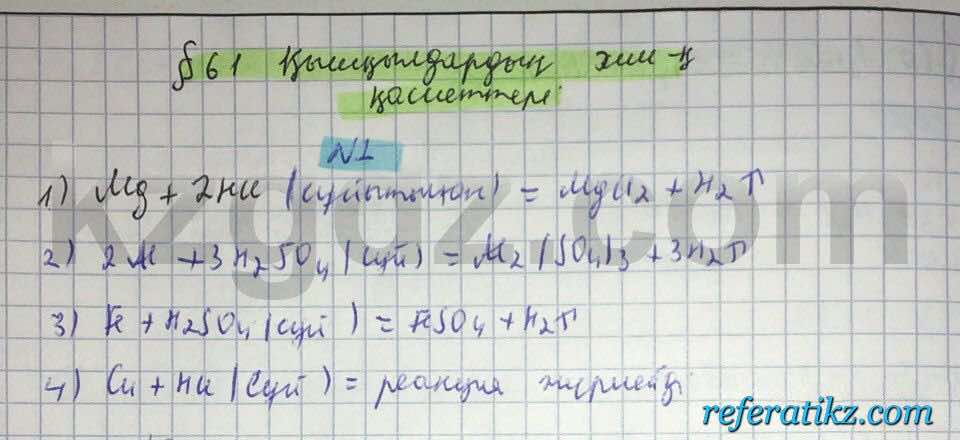 § 61 Қышқылдардың хим-қ
қасиеттері
№1
1) Mg + 2HCl (сұйытылған) = MgCl2 + H2↑
2) 2Al + 3H2SO4 (сұй) = Al2(SO4)3 + 3H2↑
3) Fe + H2SO4 (сұй) = FeSO4 + H2↑
4) Cu + HCl (сұй) = реакция жүрмейді
kzgdz.com
referatikz.com